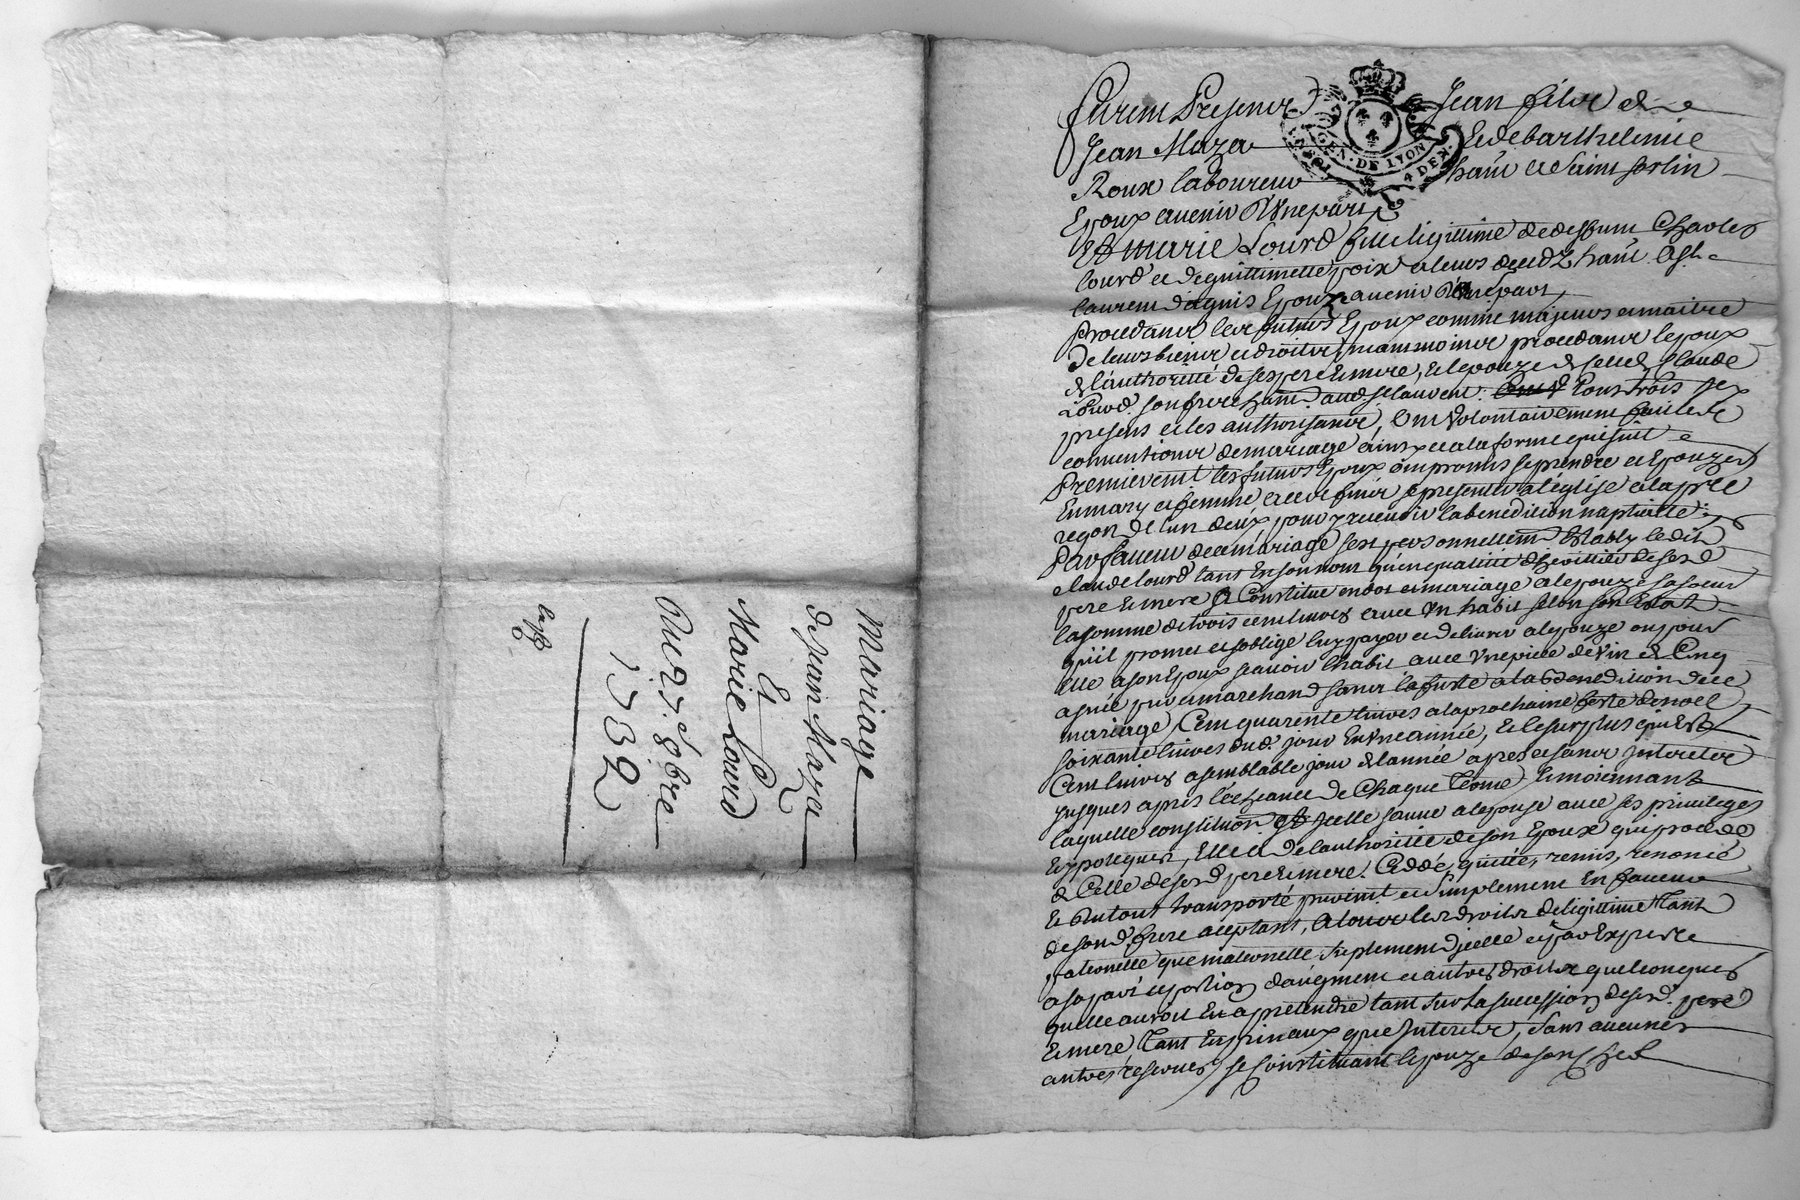 Mariage
de Jean Mazer
Et
Marie Lourd
Du 27e 8bre
1732
GEN · DE LYON
4 DEN ·
furent Presents Jean fils de
Jean Mazer Et de barthelemie
Roux laboureur hant de Saint sorlin
Epoux avenir d'Une part
Et Marie Lourd fille legittime de deffunt Charles
lourd et de guillimette
laurent d'agnis Epouze avenir d'autre part,
Procedants lesd futurs Epoux comme majeurs et maitre
de leurs biens et droits, neanmoins procedants lepoux
de l'authorité de ses pere et mere, et lepouze de celle de Claude
Lourd son frere hant aud st laurent. tous trois
presens et les authorisants, Ont Volontairement fait les
conventions de mariage ainsy et a la forme qui suit
Premierement les futurs Epoux ont promis se prendre et Epouzer
En mary et femme et se presenter a leglise
de l'un deux pour y recevoir la benediction nuptialle;
En faveur de ce mariage sest personnellement Etably ledit
claude lourd tant En son nom quen qualité d'heritier de sesd
pere et mere a Constitué en dot et mariage a lepouze sa soeur
la somme de trois cent livres avec Un habit selon son Estat
quil promet et soblige luy payer et delivrer a lepouze ou pour
elle a son Epoux scavoir l'habit avec Une piece de Vin de Cinq
asnée pur et marchand sans la futte a la benediction de ce
mariage, Cent quarente livres a la prochaine feste de noel
soixante livres dud. jour En Une année, et le surplus qui Est
Cent livres a semblable jour de l'année apres et sans interets
jusques apres lecheance de Chaque Terme, Et moiennant
laquelle constitution
hypoteques, Elle de l'authorité de son Epoux qui procede
de Celle de sesd pere et mere. A Cedé, quitté, remis, renoncé
Et du tout transporté purement et simplement En faveur
de sond. frere aceptant, A tous les droits de legittime tant
paternelle que maternelle suplement d'icelle
a sa part et portion d'augment et autres droits quelconques
quelle auroit Et a pretendre tant sur la succession de sesd. pere
Et mere, tant En principaux que Interets, sans aucunes
autres reserves, se Constituant lepouze de son Chef